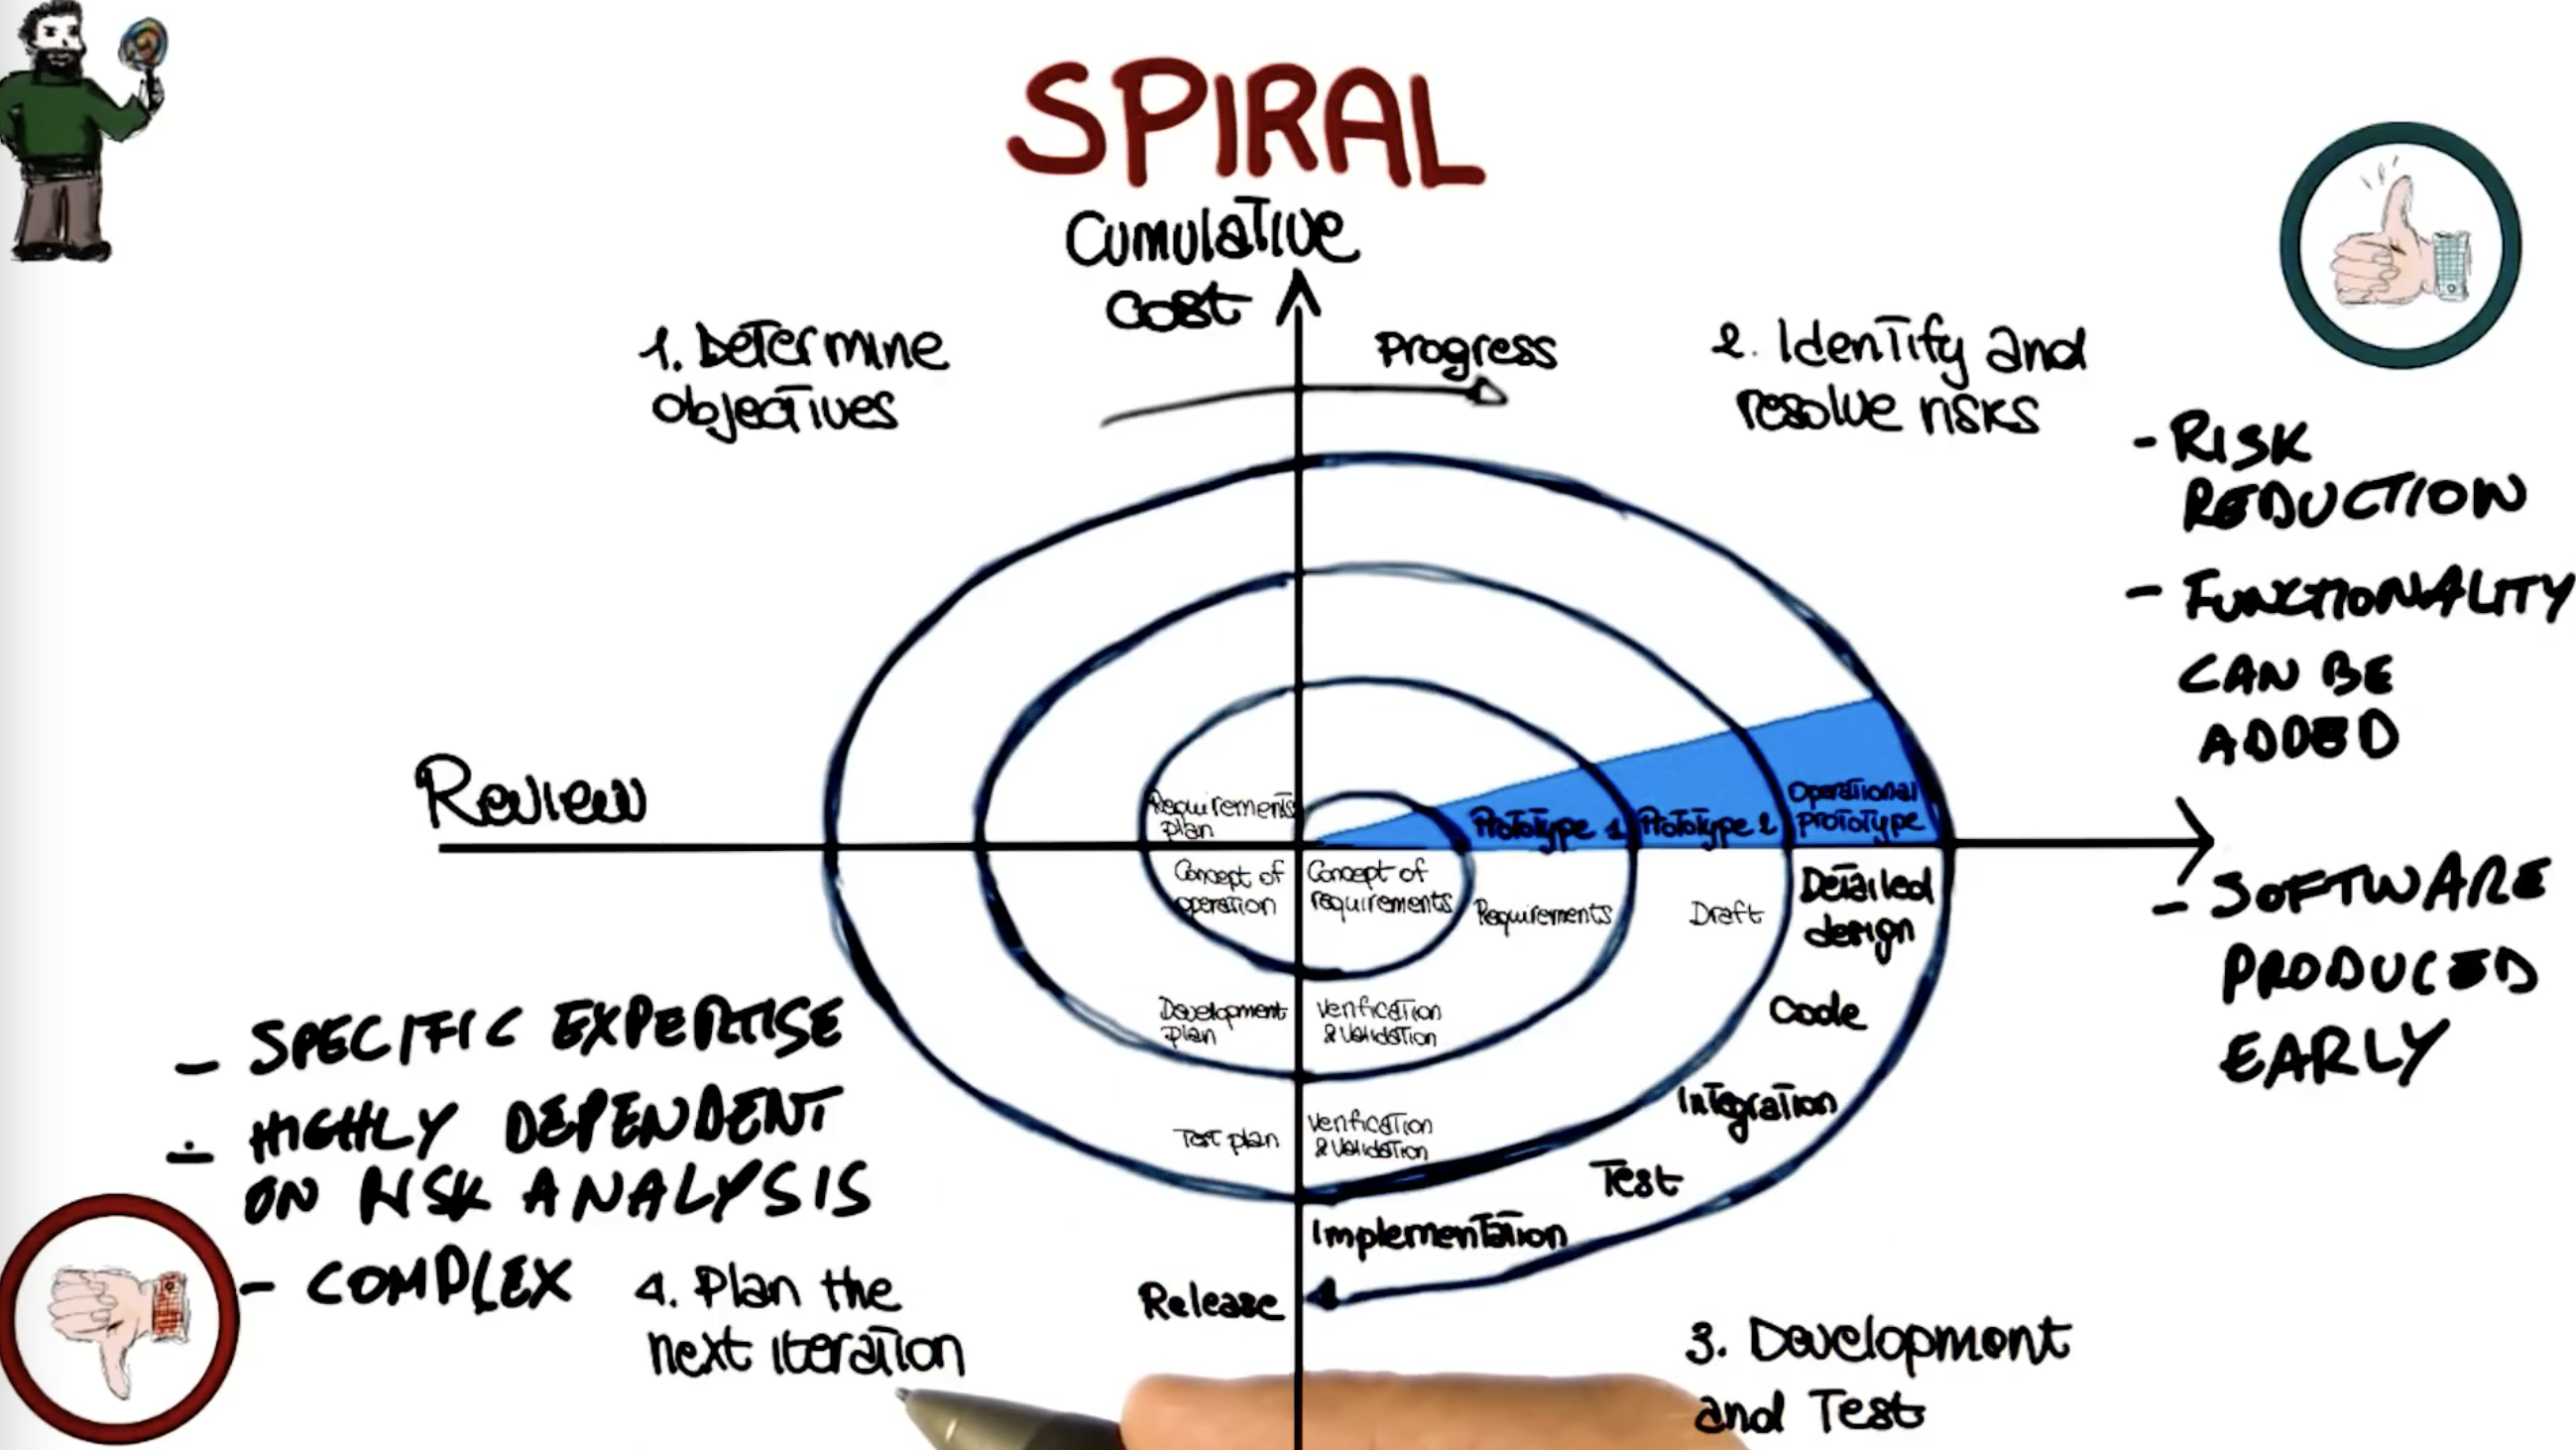 SPIRAL
Cumulative
cost
Progress
1. Determine
objectives
2. Identify and
resolve risks
- RISK
REDUCTION
- FUNCTIONALITY
CAN BE
ADDED
- SOFTWARE
PRODUCED
EARLY
Review
Requirements
plan
Prototype 1
Prototype 2
Operational
prototype
Concept of
operation
Concept of
requirements
Requirements
Draft
Detailed
design
Code
Development
plan
Verification
& Validation
Integration
Test plan
Verification
& Validation
Test
Implementation
Release
- SPECIFIC EXPERTISE
- HIGHLY DEPENDENT
ON RISK ANALYSIS
- COMPLEX
4. Plan the
next iteration
3. Development
and Test